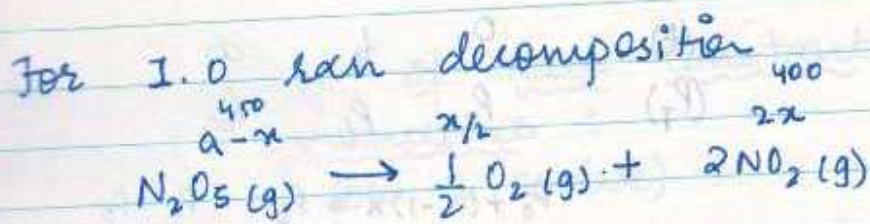 For I.O rxn decomposition
450 400
a-x x/2 2x
N₂O₅ (g) → 1/2 O₂ (g) + 2NO₂ (g)